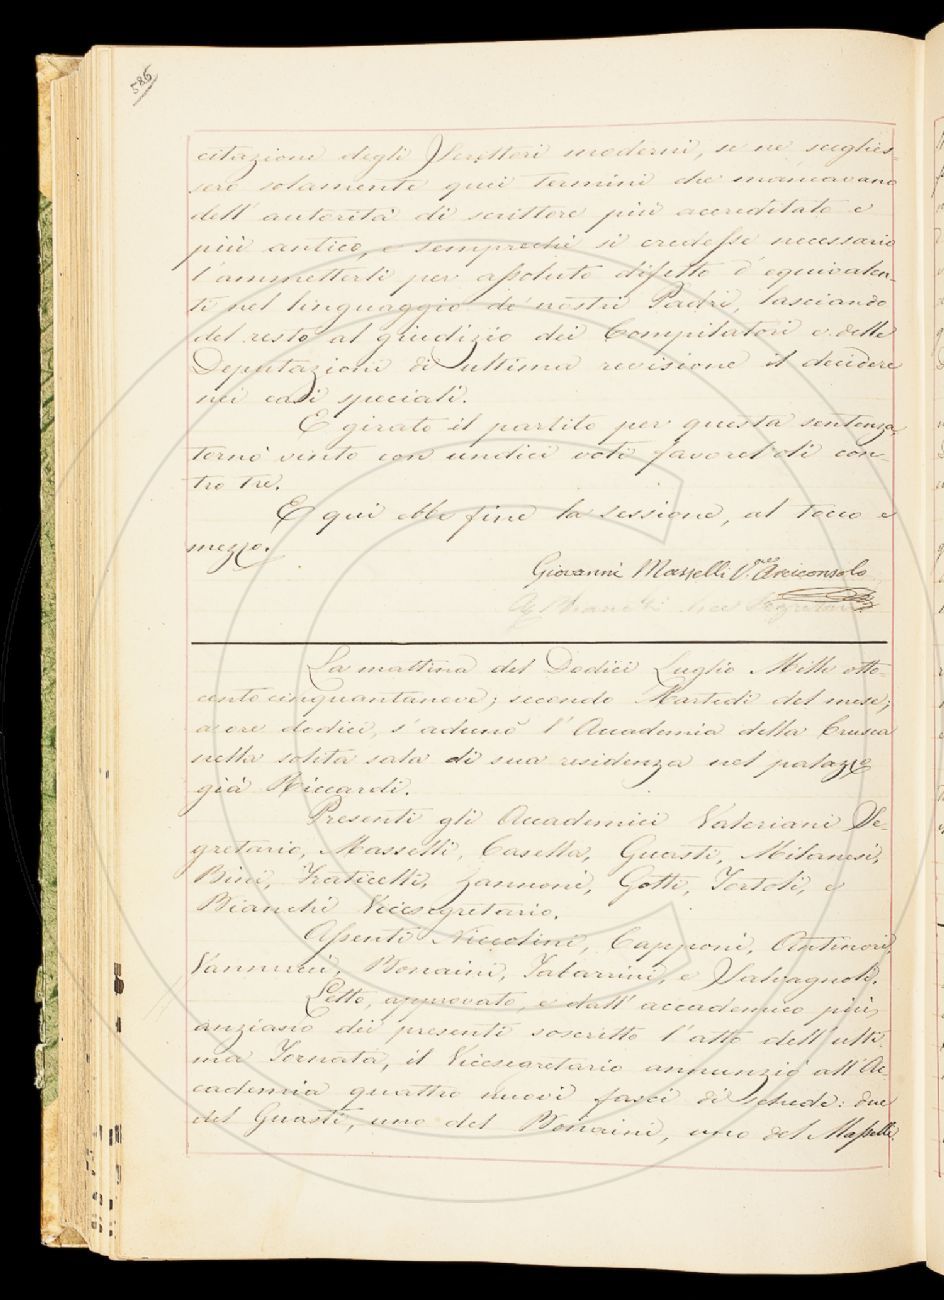 586
citazione degli Scrittori moderni, se ne sceglies-
sero solamente quei termini che mancavano
dell' autorità di scrittore più accreditato e
più antico, e semprechè si credesse necessario
l'ammetterli per assoluto difetto d'equivalen-
ti nel linguaggio de' nostri Padri, lasciando
del resto al giudizio dei Compilatori e delle
Deputazioni di ultima revisione il decidere
nei casi speciali.
E girato il partito per questa sentenza,
tornò vinto con undici voti favorevoli con-
tro tre.
E qui ebbe fine la sessione, al tocco e
mezzo.
Giovanni Masselli V.ce Arciconsolo
Bianchi Vice Segretario
La mattina del Dodici Luglio Mille otto-
cento cinquantanove; secondo Martedì del mese;
a ore dodici, s'adunò l'Accademia della Crusca
nella solita sala di sua residenza nel palazzo
già Riccardi.
Presenti gli Accademici Valeriani Se-
gretario, Masselli, Casella, Guasti, Milanesi,
Bini, Fraticelli, Zannoni, Gotti, Tortoli, e
Bianchi Vicesegretario.
Assenti Niccolini, Capponi, Antinori,
Vannucci, Bonaini, Tabarrini, e Salvagnoli.
Letto, approvato, e dall' accademico più
anziano dei presenti soscritto l'atto dell' ulti-
ma Tornata, il Vicesegretario annunziò all'Ac-
cademia quattro nuovi fasci di schede: due
del Guasti, uno del Bonaini, uno del Masselli.